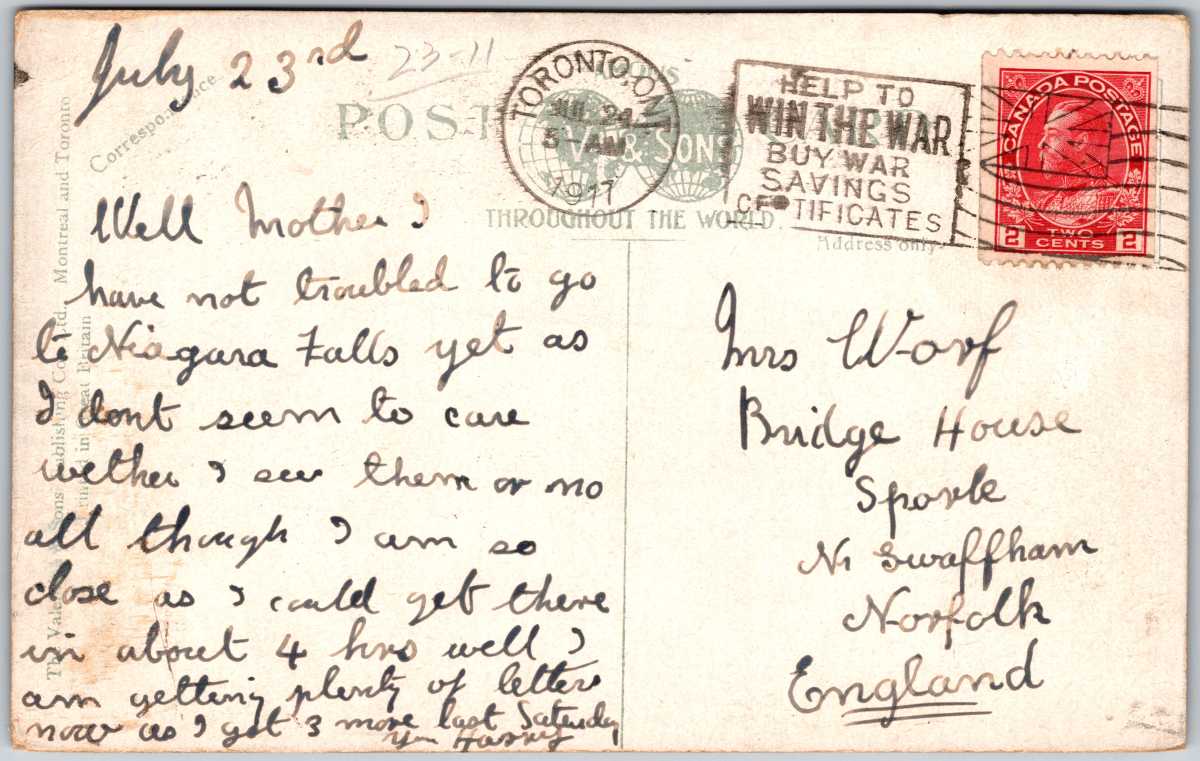 July 23rd
23-11
Correspondence
POST
VALENTINE & SONS
THROUGHOUT THE WORLD
Address only
TORONTO, ONT
JUL 24
5 - AM
1917
HELP TO
WIN THE WAR
BUY WAR
SAVINGS
CERTIFICATES
CANADA POSTAGE
2 TWO CENTS 2
Well Mother I
have not troubled to go
to Niagara Falls yet as
I dont seem to care
wether I see them or no
all though I am so
close as I could get there
in about 4 hrs well I
am getting plenty of letters
now as I got 3 more last Saturday
Your Harry
Mrs Worf
Bridge House
Sporle
Nr Swaffham
Norfolk
England
Sons Publishing Co. Ltd. Montreal and Toronto
Printed in Great Britain